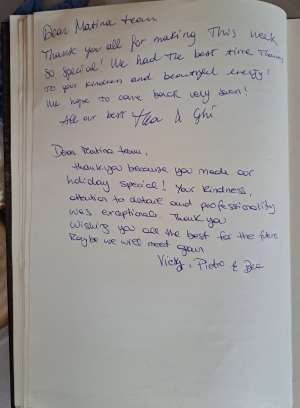 Dear Matina team
Thank you all for making this week
so special! We had the best time Thanks
to your kindness and beautiful energy!
We hope to come back very soon!
All our best & Ghi
Dear Matina team,
thank you because you made our
holiday special! Your kindness,
attention to detail and professionality
was exceptional. Thank you
Wishing you all the best for the future
Maybe we will meet again
Vicky, Pietro & Bea